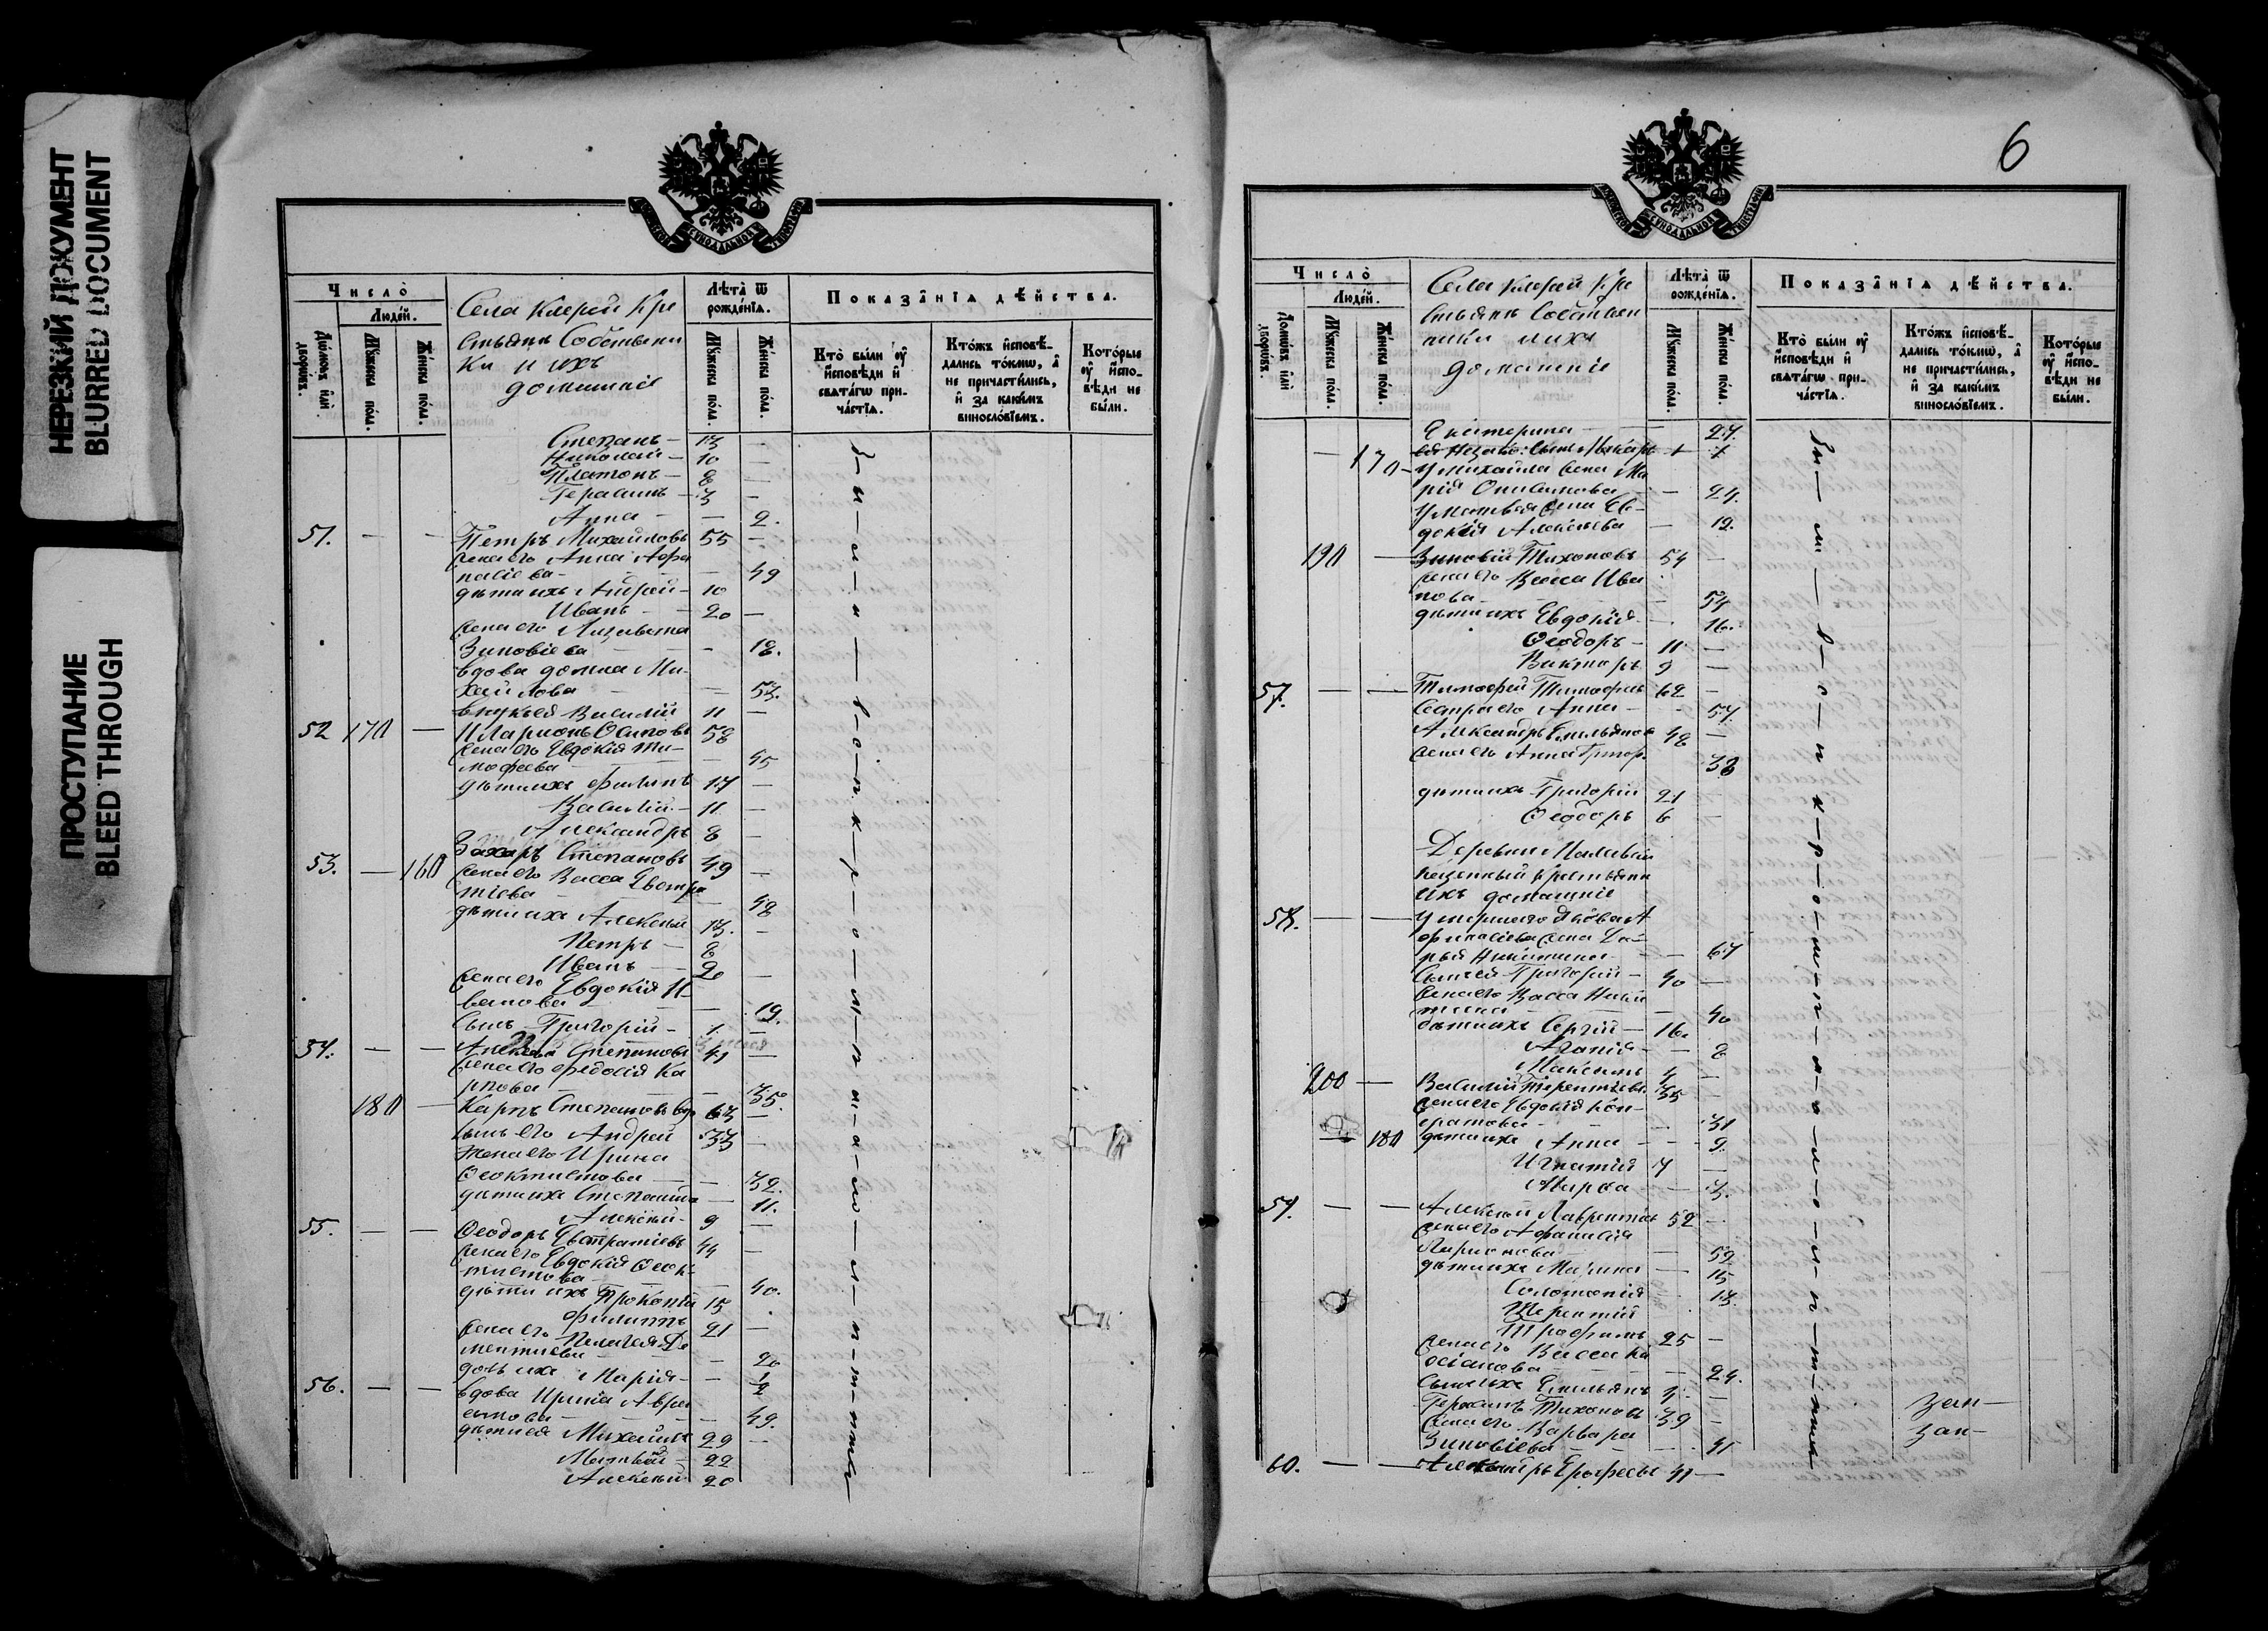 НЕРЕЗКИЙ ДОКУМЕНТ
BLURRED DOCUMENT
ПРОСТУПАНИЕ
BLEED THROUGH
Число̀
Людей.
Домѡвъ и҆лѝ дворѡвъ.
Мꙋжеска пола.
Женска пола.
Села Клерки Кре
стьяне Собственни
ки и ихъ
домашніе
Лѣта̀ ѿ рожденїѧ.
Мꙋжеска пола.
Женска пола.
Показанїѧ дѣйства.
Кто̀ были ᲂу҆ исповѣди и҆ свѧтагѡ причастїѧ.
Ктожъ исповѣдались токмѡ, а҆ не причастились, и҆ за какимъ винословїемъ.
Которые ᲂу҆ исповѣди не были.
Степанъ — 13 —
Николай — 10 —
Платонъ — 8 —
Герасимъ — 3 —
Анна — — 2.
51. — — Петръ Михайловъ 55 —
жена его Анна Афа
насіева — — 49
дѣти ихъ Андрей — 10
Иванъ — 20 —
жена его Лизавета
Зиновіева — 18.
вдова домна Ми
хайлова — 53.
внукъ ея Василій 11 —
52 170 — Иларіонъ Осиповъ 58
жена его Евдокія Ти-
мофеева — 45
дѣти ихъ Филипъ 17 —
Василій — 11 —
Александръ 8 —
53. — 160 Захаръ Степановъ 49 —
жена его Васса Евстра
тіева — 48
дѣти ихъ Алексѣй 13. —
Петръ — 8
Иванъ — 20 —
жена его Евдокія И-
ванова — 19.
сынъ Григорій — 1. —
54. — — Алексѣй Степановъ 41 —
жена его Федосія Ка
рпова — 35.
180 — Карпъ Степановъ вд. 63 —
сынъ его Андрей 33 —
жена его Ирина
Ѳеоктистова — 32.
дѣти ихъ Степанида — 11.
Алексѣй — 9 —
55. — — Ѳеодоръ Евстратіевъ 44 —
жена его Евдокія Ѳеок-
тистова — 40.
дѣти ихъ Прокопій 15
Филиппъ 21 —
жена его Пелагея Де
ментіева — 20
дочь ихъ Марія — ½
56. — — вдова Ирина Авра
амова — 49.
дѣти ея Михаилъ 29 —
Матвѣй — 22
Алексѣй 20
6
Число̀
Людей.
Домѡвъ и҆лѝ дворѡвъ.
Мꙋжеска пола.
Женска пола.
Села Клерки Кре
стьяне Собствен
ники и ихъ
домашніе
Лѣта̀ ѿ рожденїѧ.
Мꙋжеска пола.
Женска пола.
Показанїѧ дѣйства.
Кто̀ были ᲂу҆ исповѣди и҆ свѧтагѡ причастїѧ.
Ктожъ исповѣдались токмѡ, а҆ не причастились, и҆ за какимъ винословїемъ.
Которые ᲂу҆ исповѣди не были.
Екатерина — 27.
— 170 — сынъ Макаръ
у михаила жена Ма
рія Онисимова — 24.
у матвѣя жена Ев-
докія Алексѣева — 19.
190 — Зиновій Тихоновъ 54 —
жена его Васса Ива
нова — 54
дѣти ихъ Евдокія — 16.
Ѳеодоръ — 11 —
Викторъ 9 —
57. — — Тимофей Тимофеевъ 62 —
Сестра его Анна — 57.
Александръ Емельяновъ 48 —
жена его Анна Григор. 38
дѣти ихъ Григорій 21 —
Ѳеодоръ 6 —
Деревни
крестьяне
ихъ домашніе
58. — — Умершаго Якова А
фанасіева жена Да-
рья Никитина — 67
Сынъ ея Григорій — 40 —
жена его Васса Ники
тина — 40
дѣти ихъ Сергій — 16.
Агапія — 8
Максимъ 4 —
200 — Василій Терентьевъ 35 —
жена его Евдокія Кон-
дратова — 31
— 180 дѣти ихъ Анна — 9.
Игнатій 7 —
Марѳа — 3.
59. — — Алексѣй Лаврентіев 52 —
жена его Афанасія
Ларионова — 52
дѣти ихъ Марина — 15
Соломонія — 13.
Терентій
Трофимъ 25 —
жена его Васса Ка
— 24.
сынъ ихъ Емельянъ 1. —
Герасимъ Тихоновъ 39 — Зап—
жена его Варвара Зап—
Зиновіева — 41
60. — — Александръ Ерофеевъ 41 —